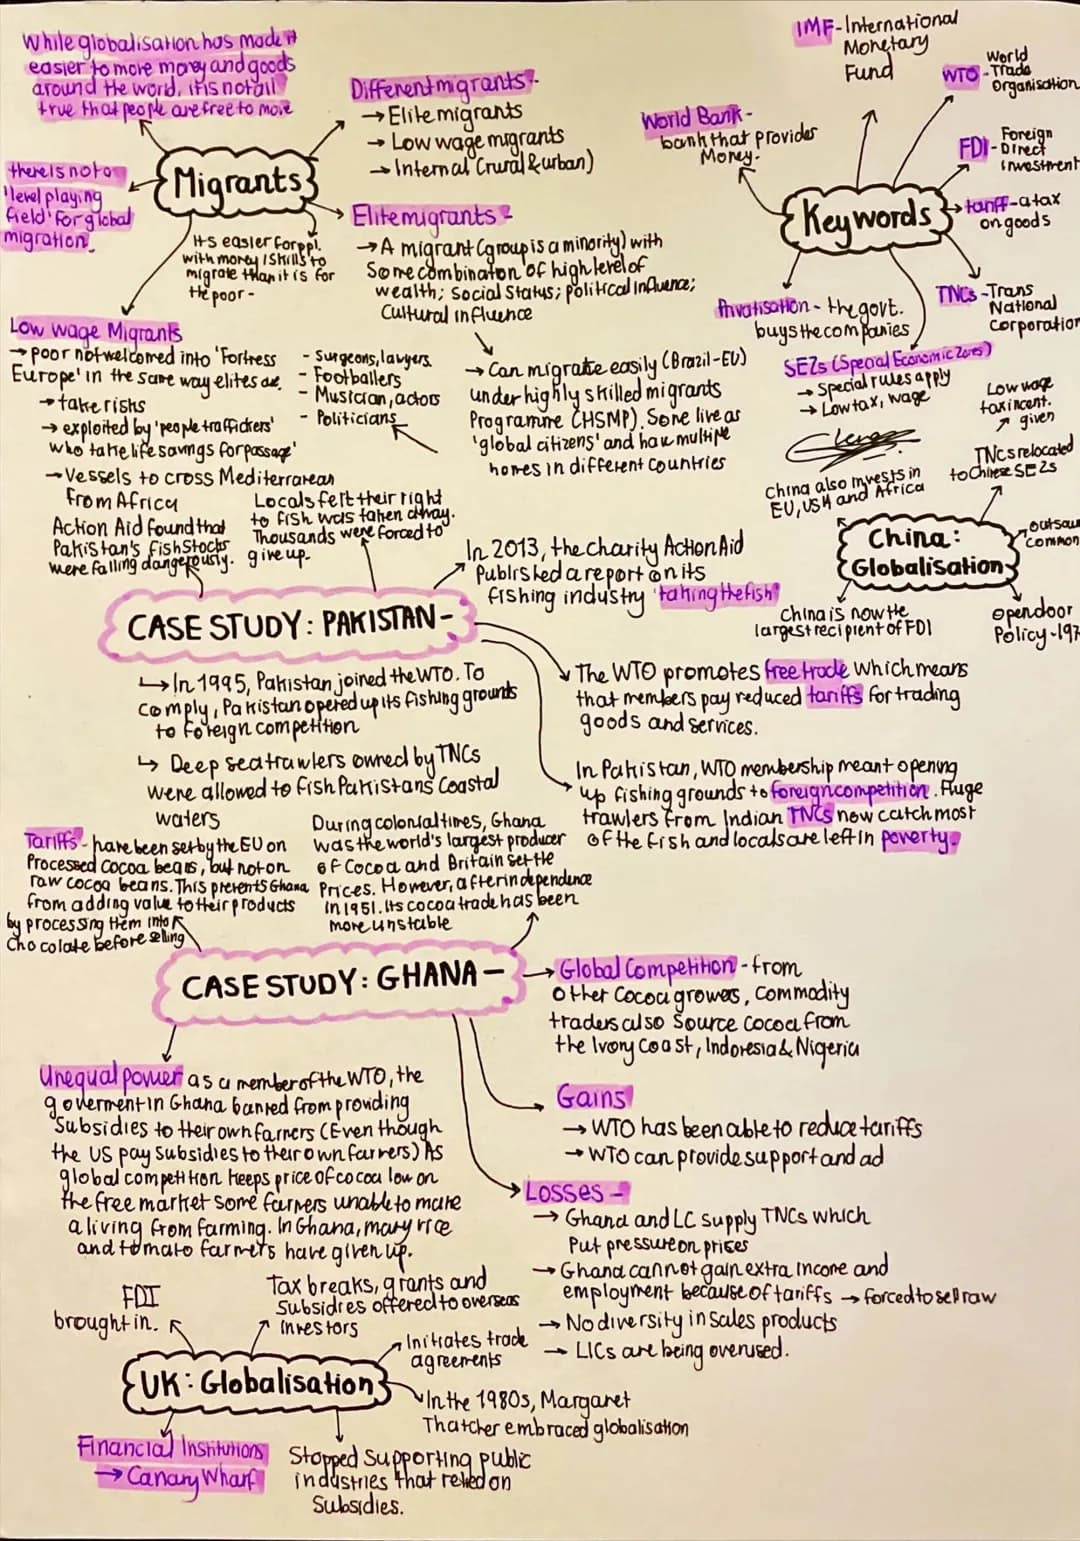 While globalisation has made it
easier to move money and goods
around the world, it is not all
true that people are free to move
Migrants
there is not a
'level playing
field' for global
migration.
It's easier for ppl.
with money/skills to
migrate than it is for
the poor -
Different migrants -
→ Elite migrants
→ Low wage migrants
→ Internal (rural & urban)
Elite migrants -
→ A migrant (group is a minority) with
some combination of high level of
wealth; social status; political influence;
cultural influence
→ Can migrate easily (Brazil-EU)
under highly skilled migrants
Programme (HSMP). Some live as
'global citizens' and have multiple
homes in different countries
- Surgeons, lawyers.
- Footballers
- Musician, actors
- Politicians
Low wage Migrants
→ poor not welcomed into 'Fortress
Europe' in the same way elites are.
→ take risks
→ exploited by 'people traffickers'
who take life savings for passage'
→ Vessels to cross Mediterranean
from Africa
IMF - International
Monetary
Fund
WTO - World
Trade
Organisation
World Bank -
bank that provider
Money.
FDI - Foreign
Direct
investment
Keywords
tariff - a tax
on goods
TNCs - Trans
National
Corporation
Privatisation - the govt.
buys the companies
SEZs (Special Economic Zones)
→ Special rules apply
→ Low tax, wage
Low wage
tax incent.
given
TNCs relocated
to Chinese SEZs
China also invests in
EU, USA and Africa
China:
Globalisation
China is now the
largest recipient of FDI
Open door
Policy - 197
CASE STUDY: PAKISTAN -
Action Aid found that
Pakistan's fish stocks
were falling dangerously.
Locals felt their right
to fish was taken away.
Thousands were forced to
give up.
In 2013, the charity Action Aid
Published a report on its
fishing industry 'taking the fish'
↳ In 1995, Pakistan joined the WTO. To
comply, Pakistan opened up its fishing grounds
to foreign competition
↳ Deep sea trawlers owned by TNCs
were allowed to fish Pakistans Coastal
waters
The WTO promotes free trade which means
that members pay reduced tariffs for trading
goods and services.
In Pakistan, WTO membership meant opening
up fishing grounds to foreign competition. Huge
trawlers from Indian TNCs now catch most
of the fish and locals are left in poverty.
CASE STUDY: GHANA -
Tariffs - have been set by the EU on
Processed cocoa beans, but not on
raw cocoa beans. This prevents Ghana
from adding value to their products
by processing them into
Chocolate before selling
During colonial times, Ghana
was the world's largest producer
of Cocoa and Britain set the
Prices. However, after independence
in 1951. Its cocoa trade has been
more unstable
Global Competition - from
other Cocoa growers, commodity
traders also source cocoa from
the Ivory Coast, Indonesia & Nigeria
Unequal power as a member of the WTO, the
goverment in Ghana banned from providing
Subsidies to their own farmers (Even though
the US pay subsidies to their own farmers) As
global competition keeps price of cocoa low on
the free market some farmers unable to make
a living from farming. In Ghana, many rice
and tomato farmers have given up.
Gains
→ WTO has been able to reduce tariffs
→ WTO can provide support and ad
Losses -
→ Ghana and LC supply TNCs which
Put pressure on prices
→ Ghana cannot gain extra income and
employment because of tariffs → forced to sell raw
→ No diversity in sales products
→ LICs are being overused.
UK: Globalisation
FDI
brought in.
Tax breaks, grants and
Subsidies offered to overseas
investors
Initiates trade
agreements
In the 1980s, Margaret
Thatcher embraced globalisation
Financial Institutions
→ Canary Wharf
Stopped supporting public
industries that relied on
Subsidies.